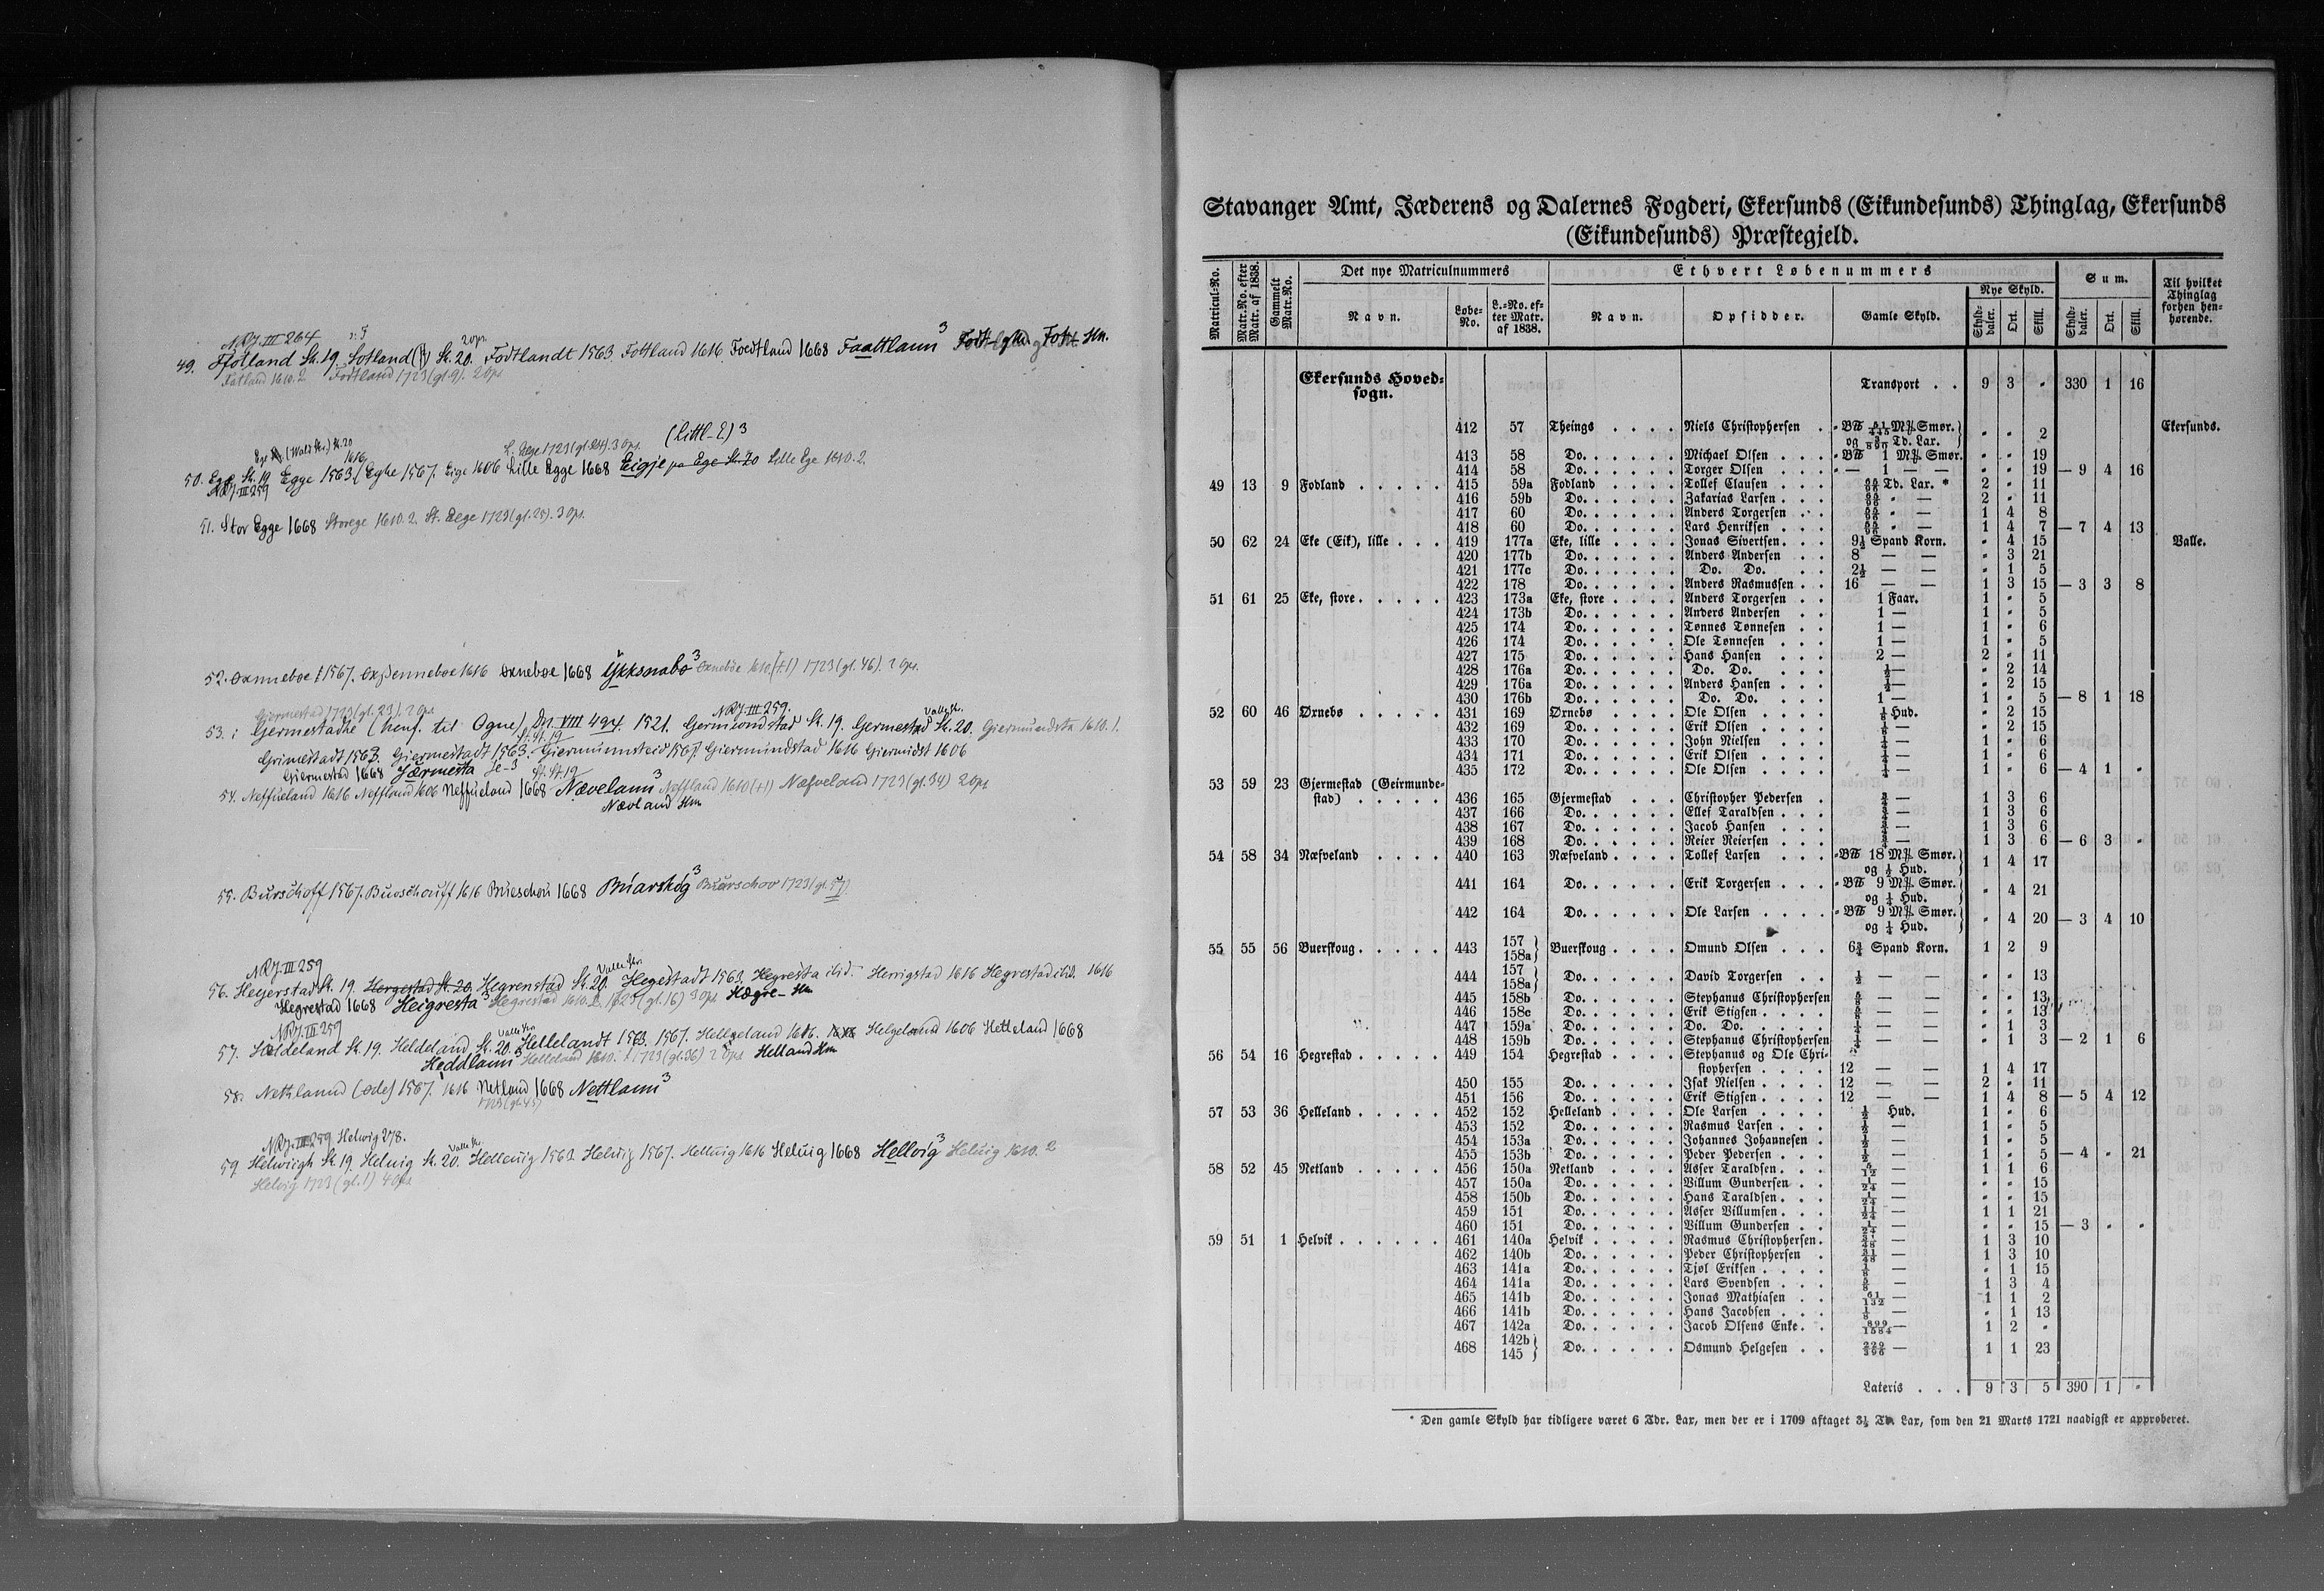 NRJ. III 264
49. Ffotland Sk. 19. Sotland Sk. 20. Fodtlandt 1563 Fottland 1616 Foedtland 1668 Faattlann
Fatland 1610.2 Fodtland 1723 (gl. 9). 2 Ops.
(Littl-E) 3
L. Eege 1723 (gl. 24). 3 Ops.
50. Ege Sk. 19 Egge 1563. Eghe 1567. Eige 1606 Lille Egge 1668 Eigje Lille Ege 1610.2.
NRJ. III 259
51. Stor Egge 1668 Storege 1610.2. St. Eege 1723 (gl. 25). 3 Ops.
52. Oxnneboe 1567. Oxpenneboe 1616 Oxneboe 1668 Ykksnabø 3 Oxneboe 1610. 1723 (gl. 46). 2 Ops.
Gjermestad 1723 (gl. 23). 2 Ops
NRJ. III 259. Valle Skr.
53. i Germestadhe (henf. til Ogne) Dn. VIII 494. 1521. Germondstad Sk. 19. Germestad Sk. 20. Giermundsta 1610. 1.
Grimestadt 1563. Giermestadt 1563. Giermunnsteid 1567. Giermundstad 1616 Giermidst 1606
Giermestad 1668 Jærmesta
54. Neffueland 1616 Neffland 1606 Neffueland 1668 Nævelann 3 Neffland 1610 (+1) Næfveland 1723 (gl. 34) 2 Ops
Nævland Hm
55. Burschoff 1567. Buoschouff 1616 Bueschou 1668 Búarskóg 3 Buerschov 1723 (gl. 57)
NRJ. III 259 Valle Skr.
56. Heyerstad Sk. 19. Hergestad Sk. 20. Hegrenstad Sk. 20. Hegestadt 1563. Hegresta ibid. Herrigstad 1616 Hegrestad ibid. 1616
Hegrestad 1668 Heigresta 3 Hegrestad 1610.2. 1723 (gl. 16) 3 Ops Hægre- Hm
NRJ. III 259 Valle Skr
57. Hældeland Sk. 19. Heldeland Sk. 20. Hellelandt 1563. 1567. Hellgeland 1616. Helgeland 1606 Hetteland 1668
Heddlann 3 Helleland 1610. 1723 (gl. 36) 2 Ops Helland Hm
58. Nethlannd (øde) 1567. 1616 Netland 1668 Nettlann 3
1723 (gl. 45)
NRJ. III 259 Helwig 278.
Valle Skr.
59 Helwiigh Sk. 19. Heluig Sk. 20. Helleuig 1563 Heluig 1567. Helluig 1616 Heluig 1668 Hellvíg 3 Heluig 1610. 2
Helvig 1723 (gl. 1) 4 Ops
Stavanger Amt, Jæderens og Dalernes Fogderi, Ekersunds (Eikundesunds) Thinglag, Ekersunds
(Eikundesunds) Præstegjeld.
Matricul-No. Matr.No. efter Matr. af 1838. Gammelt Matr.No. Det nye Matriculnummers Ethvert Løbenummers Sum. Til hvilket Thinglag forhen henhørende.
Navn. Løbe-No. L.-No. efter Matr. af 1838. Navn. Opsidder. Gamle Skyld. Nye Skyld.
Skylddaler. Ort. Skill. Skylddaler. Ort. Skill.
Ekersunds Hovedsogn. Transport . . 9 3 " 330 1 16
412 57 Theings . . . . Niels Christophersen . " " 2 Ekersunds.
413 58 Do. . . . . . Michael Olsen . . . " 1 Smør. " " 19
414 58 Do. . . . . . Torger Olsen . . . " — 1 — — " " 19 — 9 4 16
49 13 9 Fodland . . . . . 415 59a Fodland . . . . Tollef Clausen . . . 55/96 Td. Lax. * 2 " 11
416 59b Do. . . . . . Zakarias Larsen . . . 55/96 " — 2 " 11
417 60 Do. . . . . . Anders Torgersen . . 55/96 " — 1 4 8
418 60 Do. . . . . . Lars Henriksen . . . 55/96 " — 1 4 7 — 7 4 13
50 62 24 Eke (Eik), lille . . . 419 177a Eke, lille . . . . Jonas Sivertsen . . . 9½ Spand Korn. " 4 15 Valle.
420 177b Do. . . . . . Anders Andersen . . 8 — — " 3 21
421 177c Do. . . . . . Do. Do. . . 2½ — — " 1 5
422 178 Do. . . . . . Anders Rasmussen . . 16 — — 1 3 15 — 3 3 8
51 61 25 Eke, store . . . . . 423 173a Eke, store . . . . Anders Torgersen . . 1 Faar. 1 " 5
424 173b Do. . . . . . Anders Andersen . . 1 — 1 " 5
425 174 Do. . . . . . Tønnes Tønnesen . . 1 — 1 " 6
426 174 Do. . . . . . Ole Tønnesen . . . 1 — 1 " 5
427 175 Do. . . . . . Hans Hansen . . . 2 — 2 " 11
428 176a Do. . . . . . Do. Do. . . . ½ — " 2 14
429 176a Do. . . . . . Anders Hansen . . . ½ — " 2 15
430 176b Do. . . . . . Do. Do. . . . 1 — 1 " 5 — 8 1 18
52 60 46 Ørnebø . . . . . 431 169 Ørnebø . . . . Ole Olsen . . . . ⅛ Hud. " 2 15
432 169 Do. . . . . . Erik Olsen . . . . ⅛ — " 2 15
433 170 Do. . . . . . John Nielsen . . . ¼ — 1 " 6
434 171 Do. . . . . . Erik Olsen . . . . ¼ — 1 " 6
435 172 Do. . . . . . Ole Olsen . . . . ¼ — 1 " 6 — 4 1 "
53 59 23 Gjermestad (Geirmundestad) . . . . . 436 165 Gjermestad . . . Christopher Pedersen . ¾ — 1 3 6
437 166 Do. . . . . . Ellef Taraldsen . . . ¾ — 1 3 6
438 167 Do. . . . . . Jacob Hansen . . . ¾ — 1 3 6
439 168 Do. . . . . . Reier Reiersen . . . ¾ — 1 3 6 — 6 3 "
54 58 34 Næfveland . . . . 440 163 Næfveland . . . . Tollef Larsen . . . " 18 Smør. og ½ Hud. 1 4 17
441 164 Do. . . . . . Erik Torgersen . . . " 9 Smør. og ¼ Hud. " 4 21
442 164 Do. . . . . . Ole Larsen . . . . " 9 Smør. og ¼ Hud. " 4 20 — 3 4 10
55 55 56 Buerskoug . . . . . 443 157 158a Buerskoug . . . . Omund Olsen . . . 6¾ Spand Korn. 1 2 9
444 157 158a Do. . . . . . David Torgersen . . ½ — — " " 13
445 158b Do. . . . . . Stephanus Christophersen ⅝ — — " " 13
446 158c Do. . . . . . Erik Stigsen . . . . ⅝ — — " " 13
447 159a Do. . . . . . Do. Do. . . . . ¼ — — " 1 3
448 159b Do. . . . . . Stephanus Christophersen ¼ — — " 1 3 — 2 1 6
56 54 16 Hegrestad . . . . . 449 154 Hegrestad . . . . Stephanus og Ole Christophersen . . . . 12 — — 1 4 17
450 155 Do. . . . . . Isak Nielsen . . . . 12 — — 2 " 11
451 156 Do. . . . . . Erik Stigsen . . . . 12 — — 1 4 8 — 5 4 12
57 53 36 Helleland . . . . . 452 152 Helleland . . . . Ole Larsen . . . . ½ Hud. 1 " 6
453 152 Do. . . . . . Rasmus Larsen . . . ½ — 1 " 5
454 153a Do. . . . . . Johannes Johannesen . ½ — 1 " 5
455 153b Do. . . . . . Peder Pedersen . . . ½ — 1 " 5 — 4 " 21
58 52 45 Netland . . . . . 456 150a Netland . . . . Asser Taraldsen . . . 5/12 — 1 1 6
457 150a Do. . . . . . Villum Gundersen . . 1/24 — " " 15
458 150b Do. . . . . . Hans Taraldsen . . . 1/24 — " " 15
459 151 Do. . . . . . Asser Villumsen . . . 11/24 — 1 1 21
460 151 Do. . . . . . Villum Gundersen . . 1/24 — " " 15 — 3 " "
59 51 1 Helvik . . . . . . 461 140a Helvik . . . . . Rasmus Christophersen . — 1 3 10
462 140b Do. . . . . . Peder Christophersen . 31/48 — 1 3 10
463 141a Do. . . . . . Tjøl Eriksen . . . . ⅛ — " 1 15
464 141a Do. . . . . . Lars Svendsen . . . ⅝ — 1 3 4
465 141b Do. . . . . . Jonas Mathiasen . . 61/132 — 1 1 2
466 141b Do. . . . . . Hans Jacobsen . . . ⅛ — " 1 13
467 142a Do. . . . . . Jacob Olsens Enke . . 899/1584 — 1 2 "
468 142b 145 Do. . . . . . Osmund Helgesen . . 229/396 — 1 1 23
Lateris . . . 9 3 5 390 1 "
* Den gamle Skyld har tidligere været 6 Tdr. Lax, men der er i 1709 aftaget 3½ Td. Lax, som den 21 Marts 1721 naadigst er approberet.